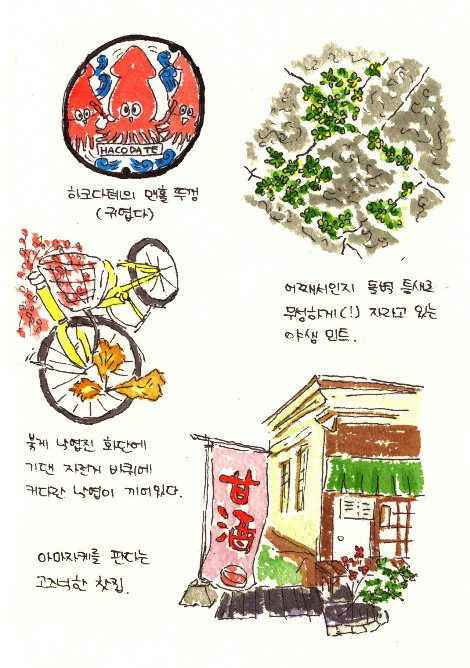 HACODATE
하코다테의 맨홀 뚜껑
(귀엽다)
어째서인지 돌벽 틈새로
무성하게(!) 자라고 있는
야생 민트.
붉게 낙엽진 화단에
기댄 자전거 바퀴에
커다란 낙엽이 끼어있다.
甘酒
아마자케를 판다는
고즈넉한 찻집.